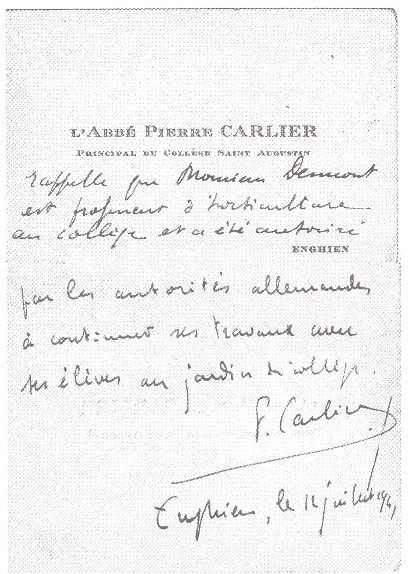 L'ABBÉ PIERRE CARLIER
PRINCIPAL DU COLLÈGE SAINT AUGUSTIN
rappelle que Monsieur Demont
est professeur d'horticulture
au collège et a été autorisé
ENGHIEN
par les autorités allemandes
à continuer ses travaux avec
ses élèves au jardin du collège.
P. Carlier
Enghien, le 12 juillet 1941